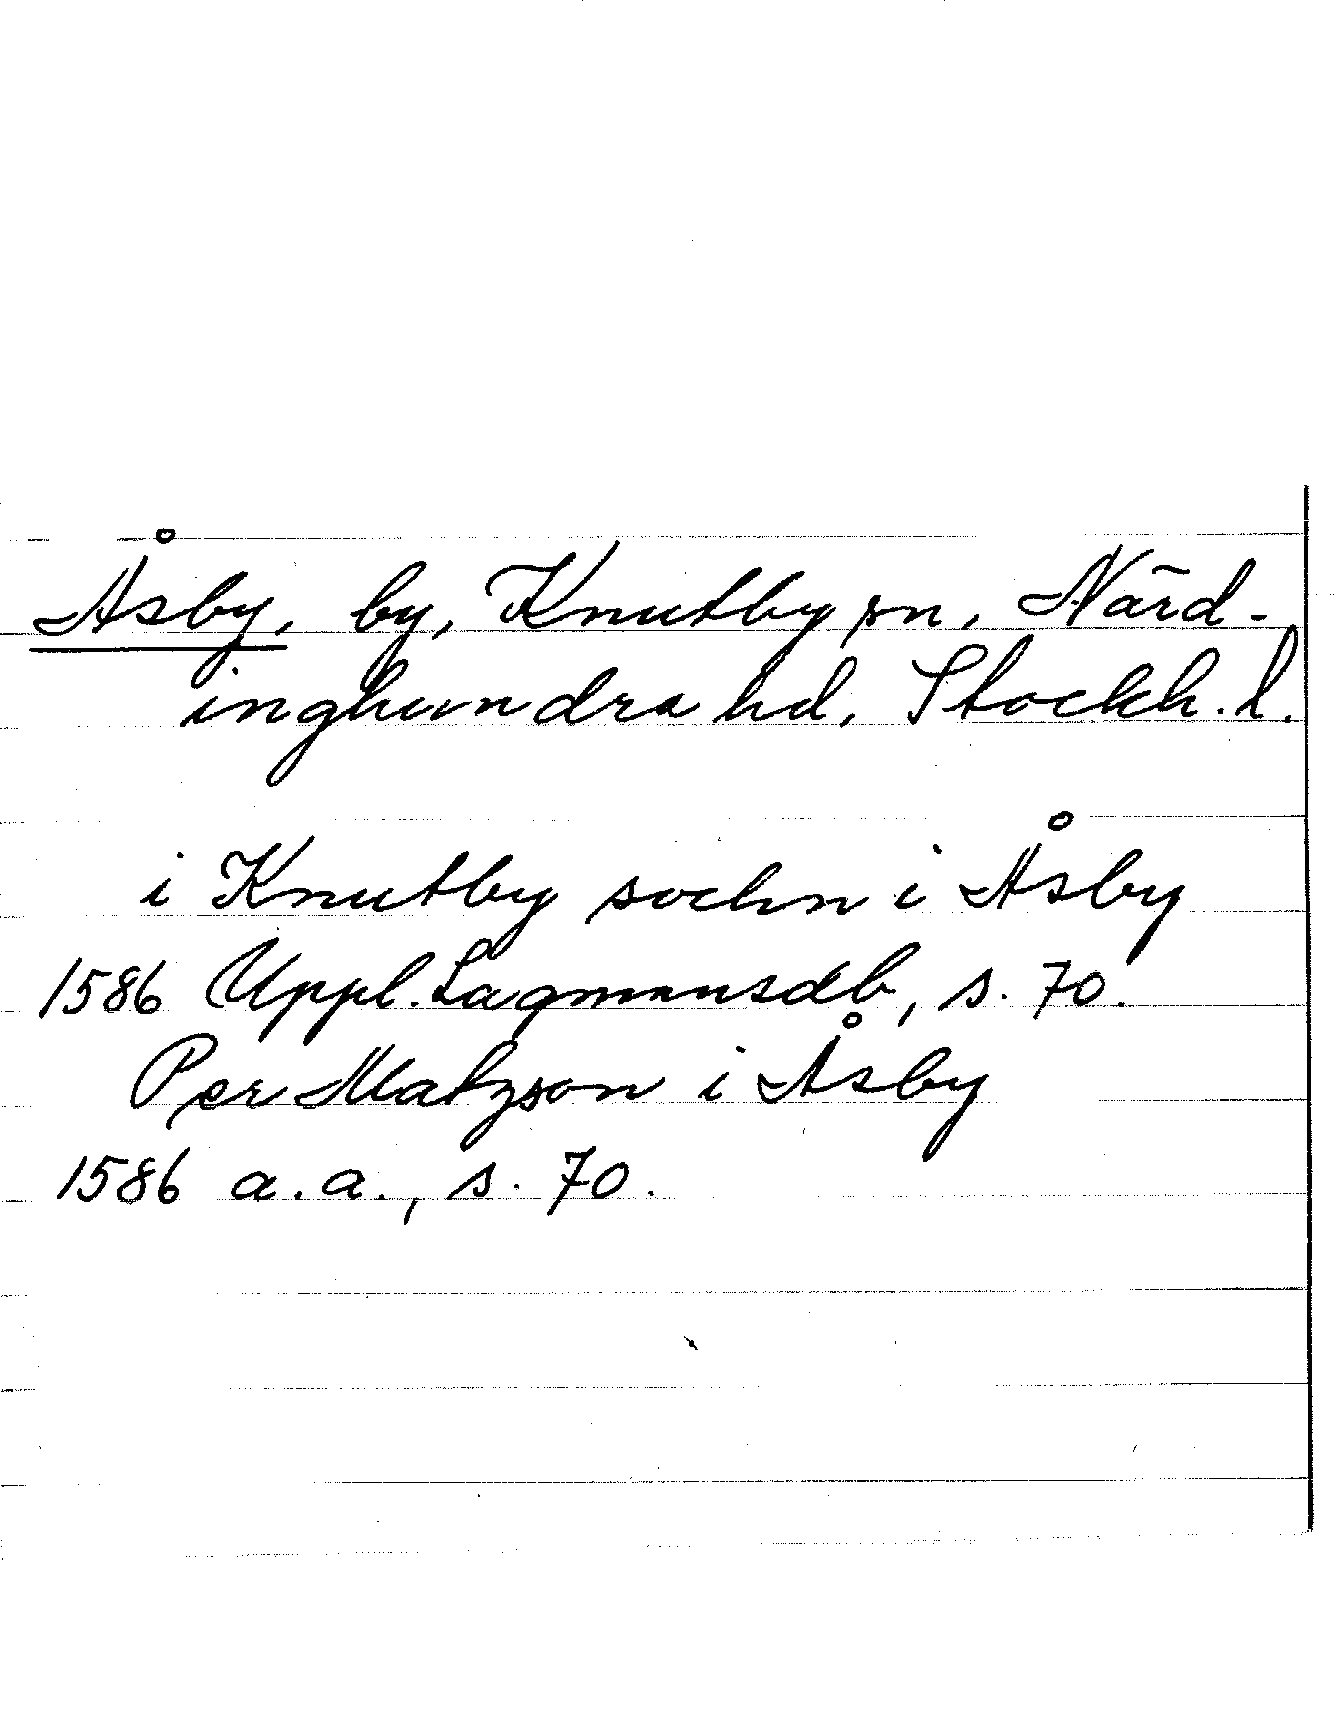 Åsby, by, Knutby sn, Närd-
inghundra hd, Stockh. l.
i Knutby sochn i Åsby
1586 Uppl. Lagmansdb, s. 70.
Per Matzson i Åsby
1586 a.a., s. 70.